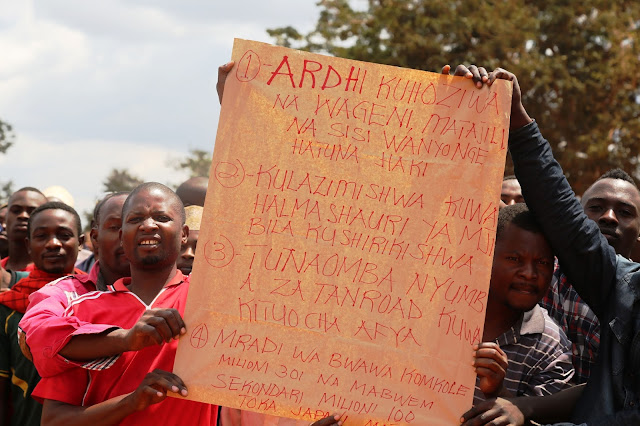 ① ARDHI KUHOZIWA
NA WAGENI, MATAJILI
NA SISI WANYONGE
HATUNA HAKI
②-KULAZIMISHWA KUWA
HALMASHAURI YA MJI
BILA KUSHIRIKISHWA
③-TUNAOMBA NYUMB
A ZATANROAD KUWA
KITUO CHA AFYA
④ MRADI WA BWAWA KOMKOLE
MILIONI 301 NA MABWEM
SEKONDARI MILIONI 100
TOKA JAPANI